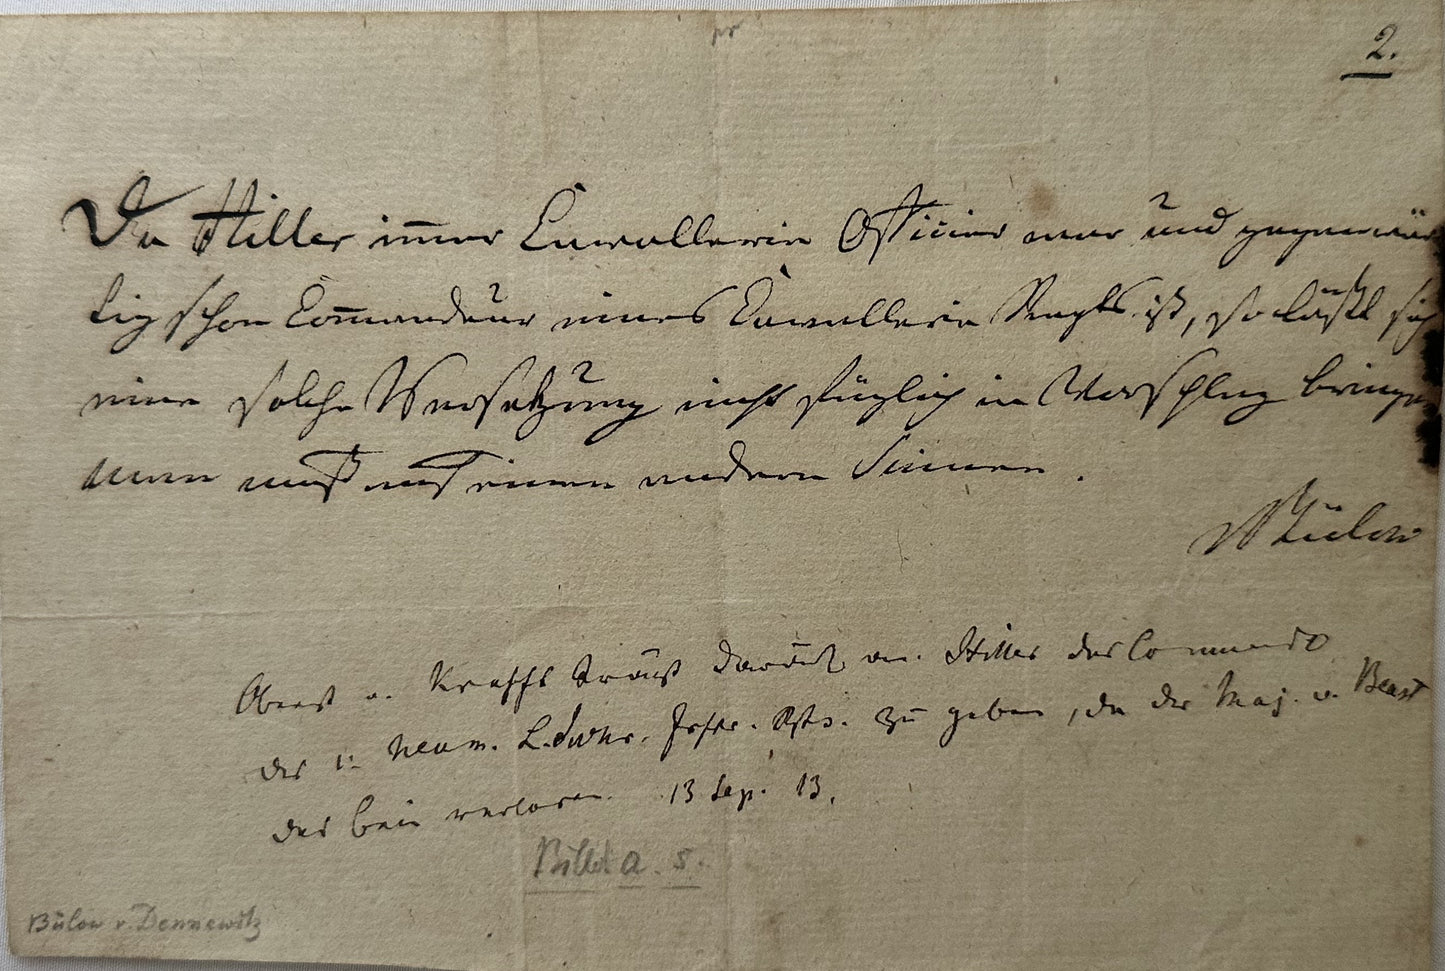 2.
Da Hiller immer Cavallerie Officier war und gegenwär
tig schon Commandeur eines Cavallerie Regts ist, so läßt sich
eine solche Versetzung nicht füglich in Vorschlag bringen
man muß auf einen andern sinnen.
Bülow
Oberst v. Krafft trägt darauf an. Hiller das Commando
des Neum. L. Inftr. Rgts. zu geben, da der Maj. v.
das Bein verloren. 13 Sep. 13.
Billet a. s.
Bülow v. Dennewitz